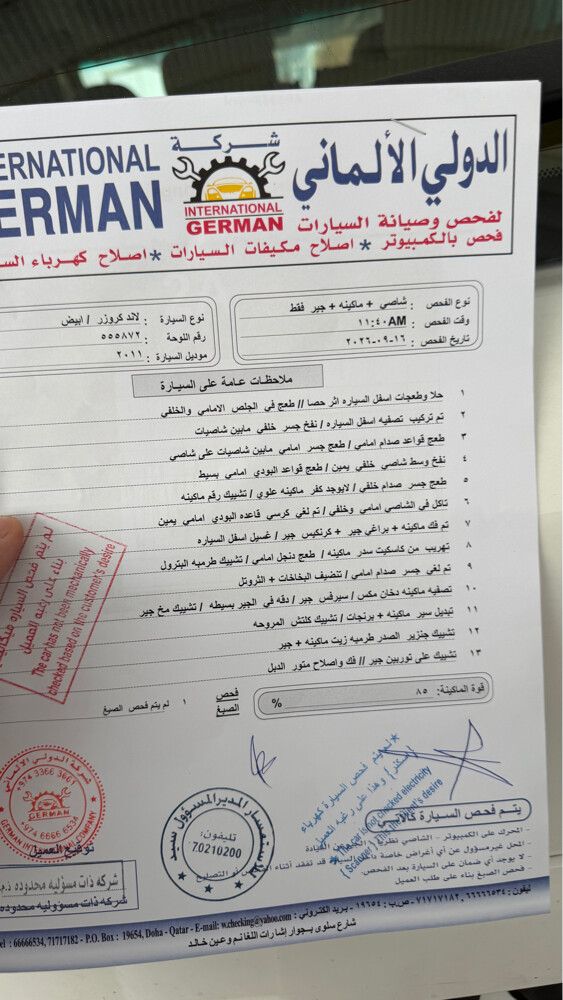 الدولي الألماني
شركة
INTERNATIONAL
GERMAN
ERNATIONAL
ERMAN
لفحص وصيانة السيارات
فحص بالكمبيوتر * اصلاح مكيفات السيارات * اصلاح كهرباء السي
نوع الفحص : شاصي + ماكينه + جير فقط
وقت الفحص : ١١:٤٠AM
تاريخ الفحص : ١٦-٠٩-٢٠٢٦
نوع السيارة : لاند كروزر / ابيض
رقم اللوحة : ٥٥٥٨٧٢
موديل السيارة : ٢٠١١
ملاحظات عامة على السيارة
١ حلا وطعجات اسفل السياره اثر حصا // طعج في الجلص الامامي والخلفي
٢ تم تركيب تصفيه اسفل السياره / نفخ جسر خلفي مابين شاصيات
٣ طعج قواعد صدام امامي / طعج جسر امامي مابين شاصيات على شاصي
٤ نفخ وسط شاصي خلفي يمين / طعج قواعد البودي امامي بسيط
٥ طعج جسر صدام خلفي / لايوجد كفر ماكينه علوي / تشييك رقم ماكينه
٦ تاكل في الشاصي امامي وخلفي / تم لغي كرسي قاعده البودي امامي يمين
٧ تم فك ماكينه + براغي جير + كرنكيس جير / غسيل اسفل السياره
٨ تهريب من كاسكيت سدر ماكينه / طعج دنجل امامي / تشييك طرمبه البترول
٩ تم لغي جسر صدام امامي / تنضيف البخاخات + الثروتل
١٠ تصفيه ماكينه دخان مكس / سيرفس جير / دقه في الجير بسيطه / تشييك مخ جير
١١ تبديل سير ماكينه + برنجات / تشييك كلتش المروحه
١٢ تشييك جنزير الصدر طرمبه زيت ماكينه + جير
١٣ تشييك على توربين جير // فك واصلاح متور الدبل
قوة الماكينة: ٨٥ %
فحص الصبغ
١ لم يتم فحص الصبغ
لم يتم فحص السياره ميكانيك
بناء على رغبه العميل
The car has not been mechanically
checked based on the customer's desire
شركة الدولي الألماني
+974 3366 3661
GERMAN
+974 6666 6534
GERMAN INTERNATIONAL COMPANY
توقيع العميل
شركة ذات مسؤلية محدوده ذ.م
شركه ذات مسؤولية محدوده
تليفون:
70210200
لم يتم فحص السيارة كهرباء
The car is not checked electricity
يتم فحص السيارة كالآتي
لا يوجد أي ضمان على السيارة بعد الفحص.
فحص الصبغ بناء على طلب العميل
تليفون: ٦٦٦٦٦٥٣٤, ٧١٧١٧١٨٢ - ص.ب: ١٩٦٥٤ - بريد الكتروني : w.checking@yahoo.com
el : 66666534, 71717182 - P.O. Box : 19654, Doha - Qatar - E-mail: w.checking@yahoo.com
شارع سلوى بجوار إشارات اللقانم وعين خالد